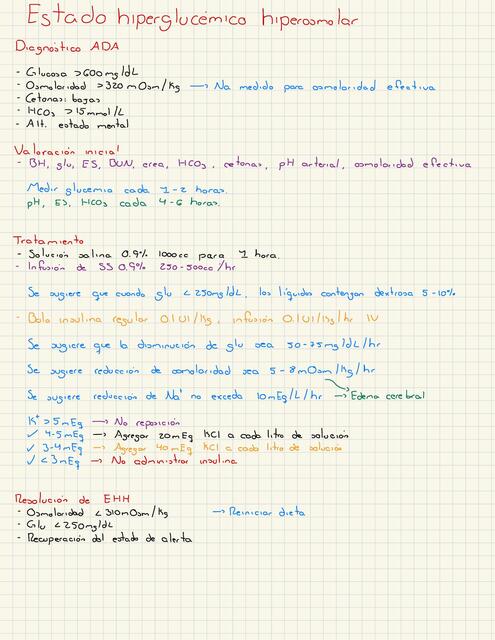 Estado hiperglucémico hiperosmolar
Diagnóstico ADA
- Glucosa >600mg/dL
- Osmolaridad >320mOsm/Kg → Na medido para osmolaridad efectiva
- Cetonas: bajas
- HCO3 >15mmol/L
- Alt. estado mental
Valoración inicial
- BH, glu, ES, BUN, crea, HCO3, cetonas, pH arterial, osmolaridad efectiva
Medir glucemia cada 1-2 horas.
pH, ES, HCO3 cada 4-6 horas.
Tratamiento
- Solución salina 0.9% 1000cc para 1 hora.
- Infusión de SS 0.9% 250-500cc/hr
Se sugiere que cuando glu <250mg/dL, los líquido contengan dextrosa 5-10%
- Bolo insulina regular 0.1UI/Kg, infusión 0.1UI/Kg/hr IV
Se sugiere que la disminución de glu sea 50-75mg/dL/hr
Se sugiere reducción de osmolaridad sea 5-8mOsm/Kg/hr
Se sugiere reducción de Na+ no exceda 10mEq/L/hr → Edema cerebral
K+ >5mEq → No reposición
✓ 4-5mEq → Agregar 20mEq KCl a cada litro de solución
✓ 3-4mEq → Agregar 40mEq KCl a cada litro de solución
✓ <3mEq → No administrar insulina
Resolución de EHH
- Osmolaridad <310mOsm/Kg → Reiniciar dieta
- Glu <250mg/dL
- Recuperación del estado de alerta